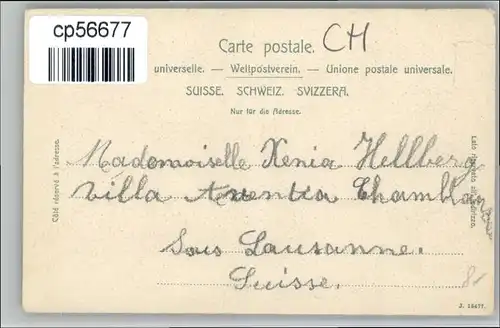 cp56677
Carte postale. CH
universelle. — Weltpostverein. — Unione postale universale.
SUISSE. SCHWEIZ. SVIZZERA.
Nur für die Adresse.
Côté réservé à l'adresse.
Lato riservato all'indirizzo.
Mademoiselle Xenia Hellberg
Villa Aventia Chamblandes
Sous Lausanne.
Suisse.
J. 15477.